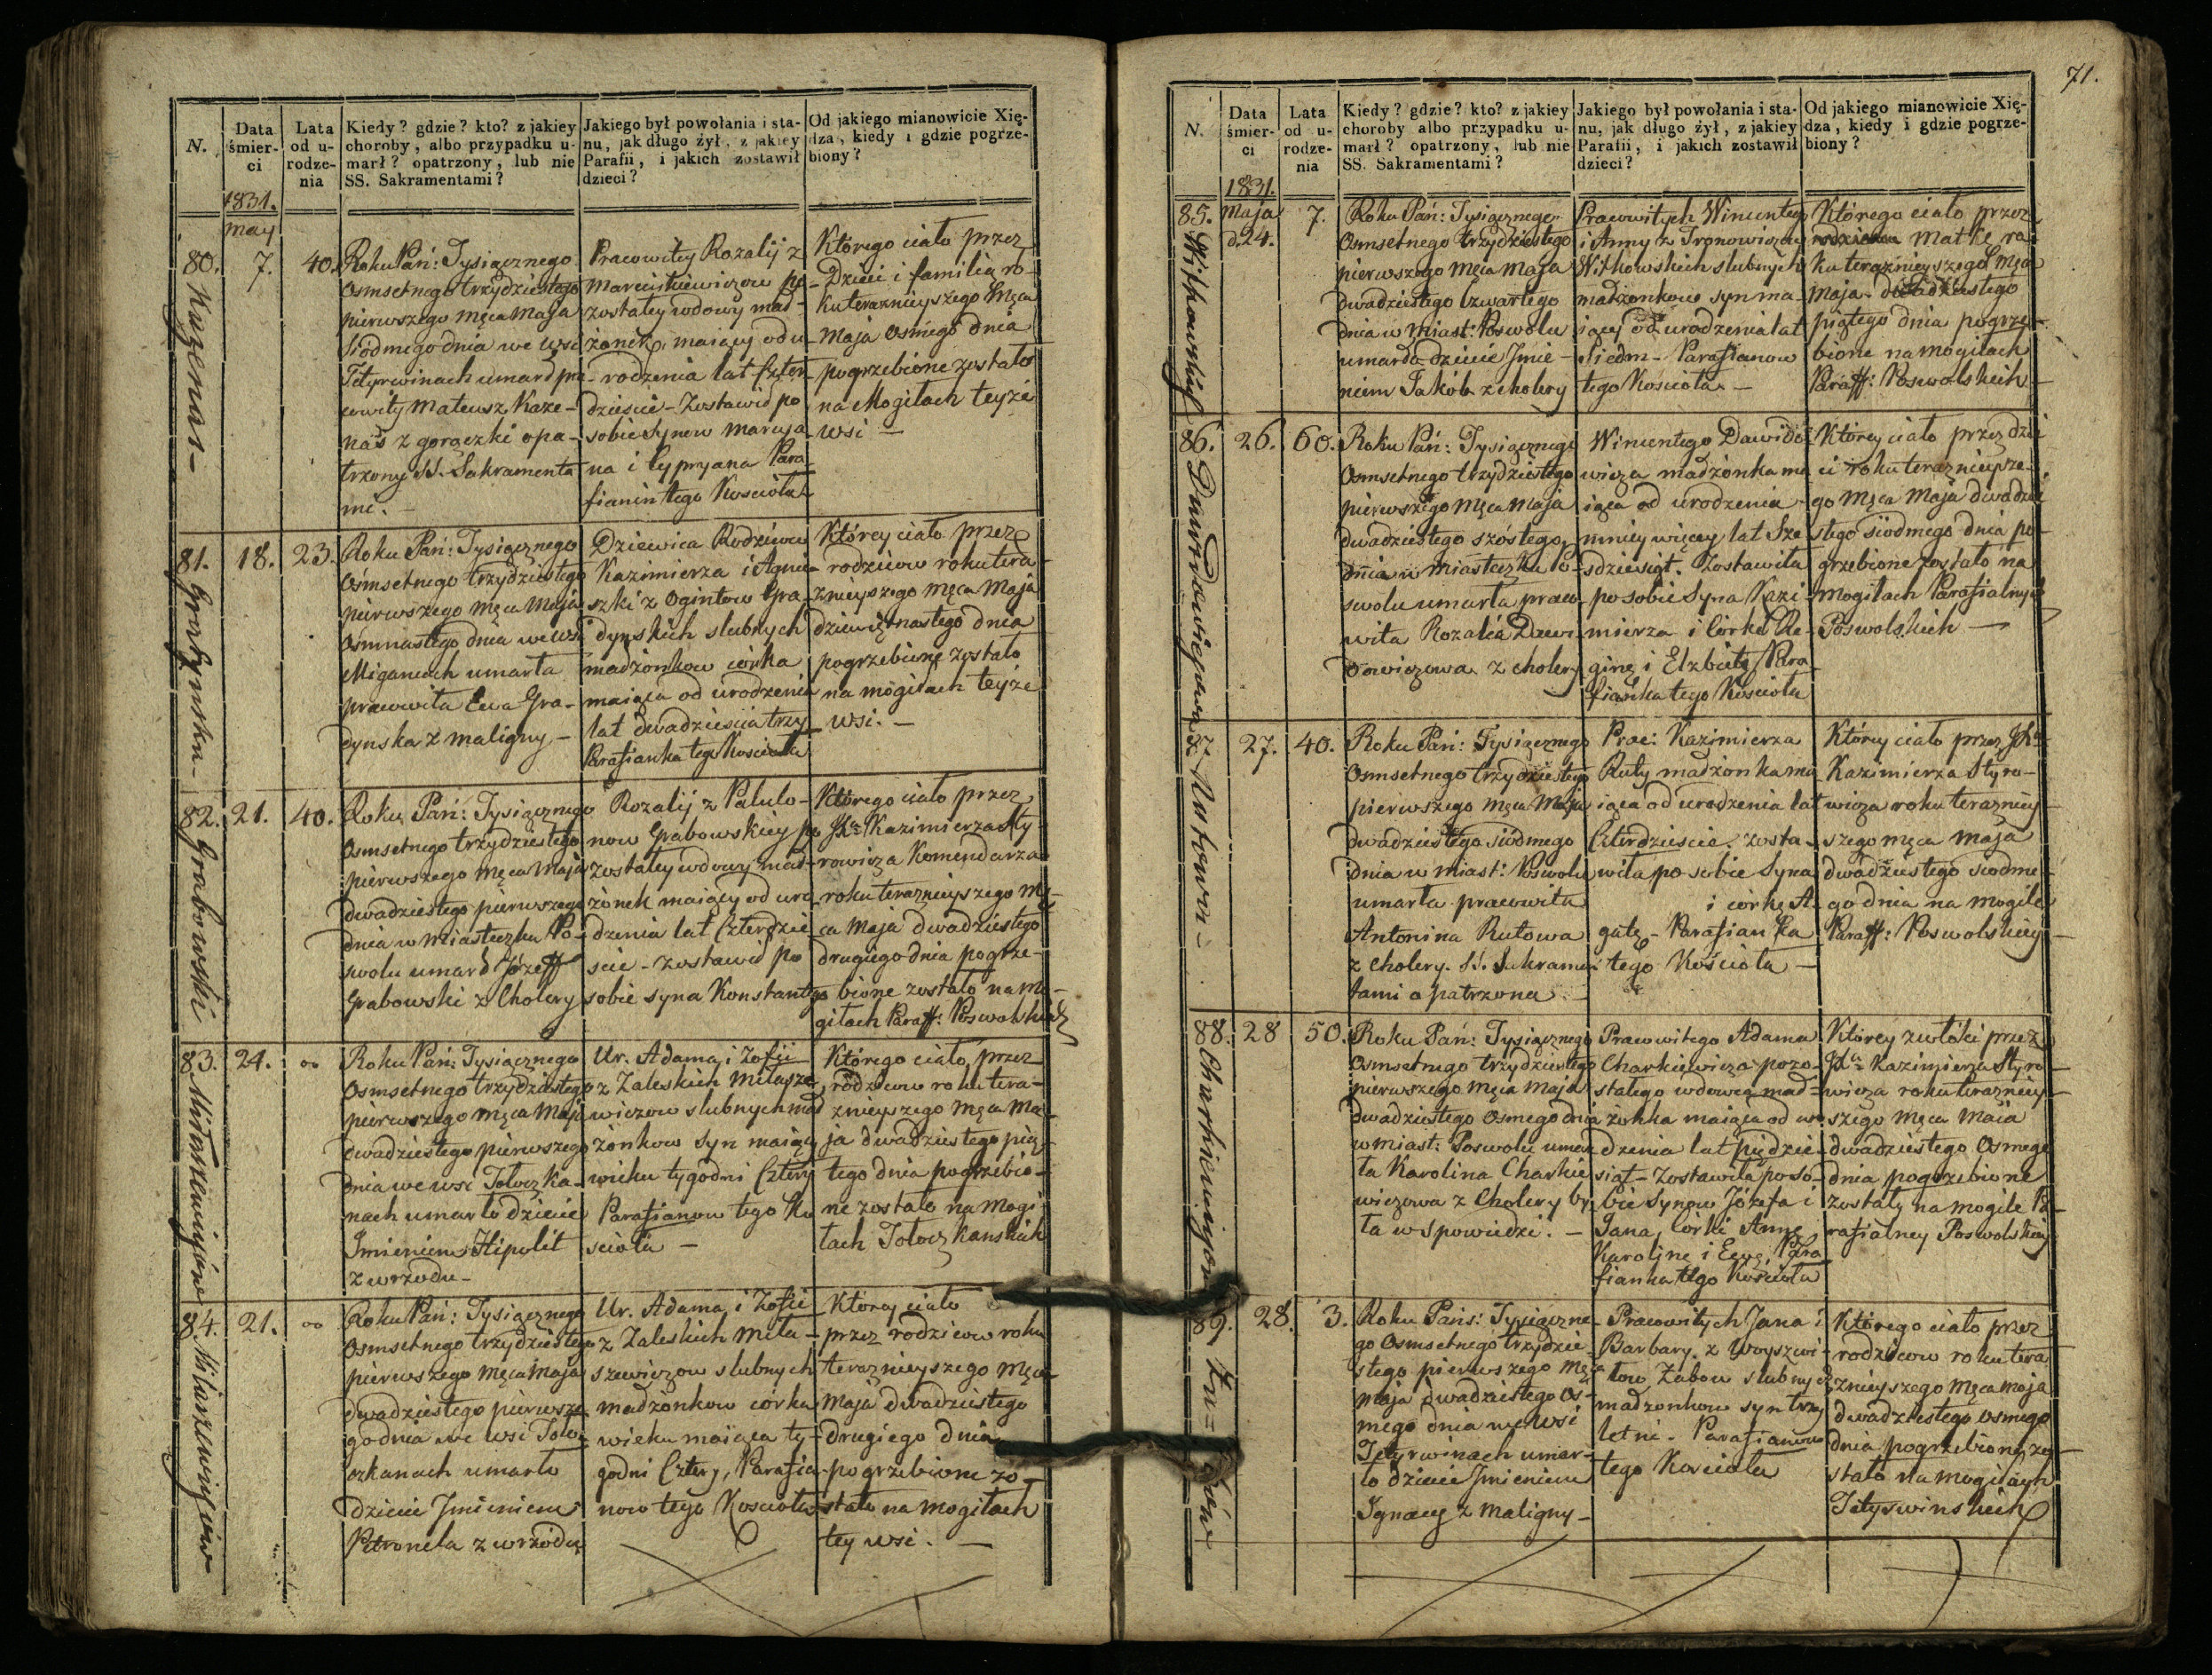 71.
N.
Data śmier- ci
Lata od u- rodze- nia
Kiedy? gdzie? kto? z jakiey
choroby, albo przypadku u-
marł? opatrzony, lub nie
SS. Sakramentami?
Jakiego był powołania i sta-
nu, jak długo żył, z jakiey
Parafii, i jakich zostawił
dzieci?
Od jakiego mianowicie Xię-
dza, kiedy i gdzie pogrze-
biony?
1831.
May
80.
7.
40.
Roku Pań: Tysiącznego
Osmsetnego trzydziestego
pierwszego Męca Maja
siódmego dnia we wsi
Tetyrwinach umarł pra-
cowity Mateusz Kaze-
nas z gorączki opa-
trzony SS. Sakramenta
mi. –
Pracowitey Rozalij z
Marcinkiewiczow po-
zostałey wdowy mał-
żonek, maiący od u-
rodzenia lat Czter-
dzieście – Zostawił po
sobie Synow Maryja-
na i Cypryana Para-
fianin tego Kosciola
Którego ciało przez
Dzieci i familią ro-
ku teraznieyszego Męca
Maja Osmego dnia
pogrzebione zostało
na Mogiłach teyże
wsi –
81.
Gradynska –
18.
23.
Roku Pań: Tysiącznego
Osmsetnego trzydziestego
pierwszego Męca Maja
Osmnastego dnia we wsi
Miganciach umarła
pracowita Ewa Gra-
dynska z maligny –
Dziewica Rodzicow
Kazimierza i Agnie-
szki z Ogintow Gra-
dynskich slubnych
małżonkow córka
maiąca od urodzenia
lat dwadzieścia trzy
Parafianka tego Kosciola
Którey ciało przez
rodzicow roku tera-
znieyszego Męca Maja
dziewiętnastego dnia
pogrzebione zostało
na mogiłach teyże
wsi. –
82.
Grabowski
21.
40.
Roku Pań: Tysiącznego
Osmsetnego trzydziestego
pierwszego Męca Maja
dwadziestego pierwszego
dnia w Miasteczku Po-
swolu umarł Józeff
Grabowski z Cholery
Rozalij z Palulo-
now Grabowskiey po
zostałey wdowy mał-
żonek maiący od uro-
dzenia lat Czterdzie
ście – zostawił po
sobie syna Konstantego
Którego ciało przez
JXa Kazimierza Sty-
rowicza Komendarza
roku teraznieyszego Mę-
ca Maja dwadziestego
drugiego dnia pogrze-
bione zostało na mo-
giłach Paraff: Poswolskich
83.
24.
∞
Roku Pań: Tysiącznego
Osmsetnego trzydziestego
pierwszego Męca Maja
dwadziestego pierwszego
dnia we wsi Toloczka-
nach umarło dziecie
Imieniem Hipolit
z wrzodu –
Ur. Adama i Zofii
z Zaleskich Milasze-
wiczow slubnych mał
żonkow Syn maiący
wieku tygodni Cztery
Parafianow tego Ko
sciola –
Którego ciało przez
rodzicow roku tera-
znieyszego Męca Ma-
ja dwadziestego pią-
tego dnia pogrzebio-
ne zostało na Mogi-
łach Toloczkanskich
84.
Milaszewiczow
21.
∞
Roku Pań: Tysiącznego
Osmsetnego trzydziestego
pierwszego Męca Maja
dwadziestego pierwsze-
go dnia we wsi Tolo-
czkanach umarło
dziecie Imieniem
Petronela z wrzodu
Ur. Adama i Zofii
z Zaleskich Mila-
szewiczow slubnych
małżonkow córka
wieku maiąca ty-
godni Cztery, Parafia-
now tego Kosciola
Którey ciało
przez rodzicow roku
teraznieyszego Męca
Maja dwadziestego
drugiego dnia
pogrzebione zo-
stało na mogiłach
tey wsi. –
N.
Data śmier- ci
Lata od u- rodze- nia
Kiedy? gdzie? kto? z jakiey
choroby albo przypadku u-
marł? opatrzony, lub nie
SS. Sakramentami?
Jakiego był powołania i sta-
nu, jak długo żył, z jakiey
Parafii, i jakich zostawił
dzieci?
Od jakiego mianowicie Xię-
dza, kiedy i gdzie pogrze-
biony?
1831.
85.
Maja
d. 24.
7.
Roku Pań: Tysiącznego
Osmsetnego trzydziestego
pierwszego Męca Maja
dwadziestego Czwartego
dnia w Miast: Poswolu
umarło dziecie Imie-
niem Jakób z cholery
Pracowitych Wincentego
i Anny z Tronowiczow
Witkowskich slubnych
małżonkow syn ma-
iący od urodzenia lat
Siedm – Parafianow
tego Kosciola –
Którego ciało przez
Matkę ro-
ku teraznieyszego Męca
Maja dwadziestego
piątego dnia pogrze-
bione na mogiłach
Paraff: Poswolskich –
86.
Dawidowiczowa
26.
60.
Roku Pań: Tysiącznego
Osmsetnego trzydziestego
pierwszego Męca Maja
dwadziestego szóstego
dnia w miasteczku Po-
swolu umarła praco-
wita Rozalia Dawi-
dowiczowa z cholery
Wincentego Dawido-
wicza małżonka ma
iąca od urodzenia
mniey więcey lat Sze
śdziesiąt. Zostawiła
po sobie Syna Kazi-
mierza i Córkę Re-
ginę i Elzbietę Para-
fianka tego Kosciola
Którey ciało przez dzie
ci roku teraznieysze-
go Męca Maja dwadzie
stego siodmego dnia po-
grzebione zostało na
Mogiłach Parafialnych
Poswolskich –
Rutowa –
27.
40.
Roku Pań: Tysiącznego
Osmsetnego trzydziestego
pierwszego Męca Maja
dwadziestego siodmego
dnia w miast: Poswolu
umarła pracowita
Antonina Rutowa
z Cholery. SS. Sakramen-
tami opatrzona –
Prac: Kazimierza
Ruty małżonka ma
iąca od urodzenia lat
Czterdzieście. zosta-
wiła po sobie Syna
i córkę A-
gatę – Parafianka
tego Kościola –
Którey ciało przez JXa
Kazimierza Styro-
wicza roku teraznie-
szego męca Maja
dwadziestego siodme-
go dnia na mogile
Paraff: Poswolskiey –
88.
Charkiewiczowa
28
50.
Roku Pań: Tysiącznego
Osmsetnego trzydziestego
pierwszego Męca Maja
dwadziestego Osmego dnia
w miast: Poswolu umar
ła Karolina Charkie
wiczowa z Cholery by-
ła w spowiedzi. –
Pracowitego Adama
Charkiewicza pozo-
stałego wdowca mał-
żonka maiąca od uro
dzenia lat pięćdzie-
siąt – Zostawiła po so-
bie Synow Józefa i
Jana, Córki Annę
Karolinę i Ewę, Para
fianka tego Kościola
Którey zwłoki przez
JXa Kazimierza Styro
wicza roku teraznie-
szego Męca Maia
dwadziestego Osmego
dnia pogrzebione
zostały na mogile Pa-
rafialney Poswolskiey
89.
28.
3.
Roku Pańs: Tysiączne-
go Osmsetnego trzydzie-
stego pierwszego Męca
Maja dwadziestego Os-
mego dnia we wsi
Tetyrwinach umar-
ło dziecie Imieniem
Ignacy z maligny –
Pracowitych Jana i
Barbary z Woyszwi-
łow Zubow slubnych
małżonkow syn trzy
letni – Parafianow
tego Kosciola
Którego ciało przez
rodzicow roku tera
znieyszego Męca Maja
dwadziestego osmego
dnia pogrzebione zo-
stało na mogiłach
Tetyrwinskich